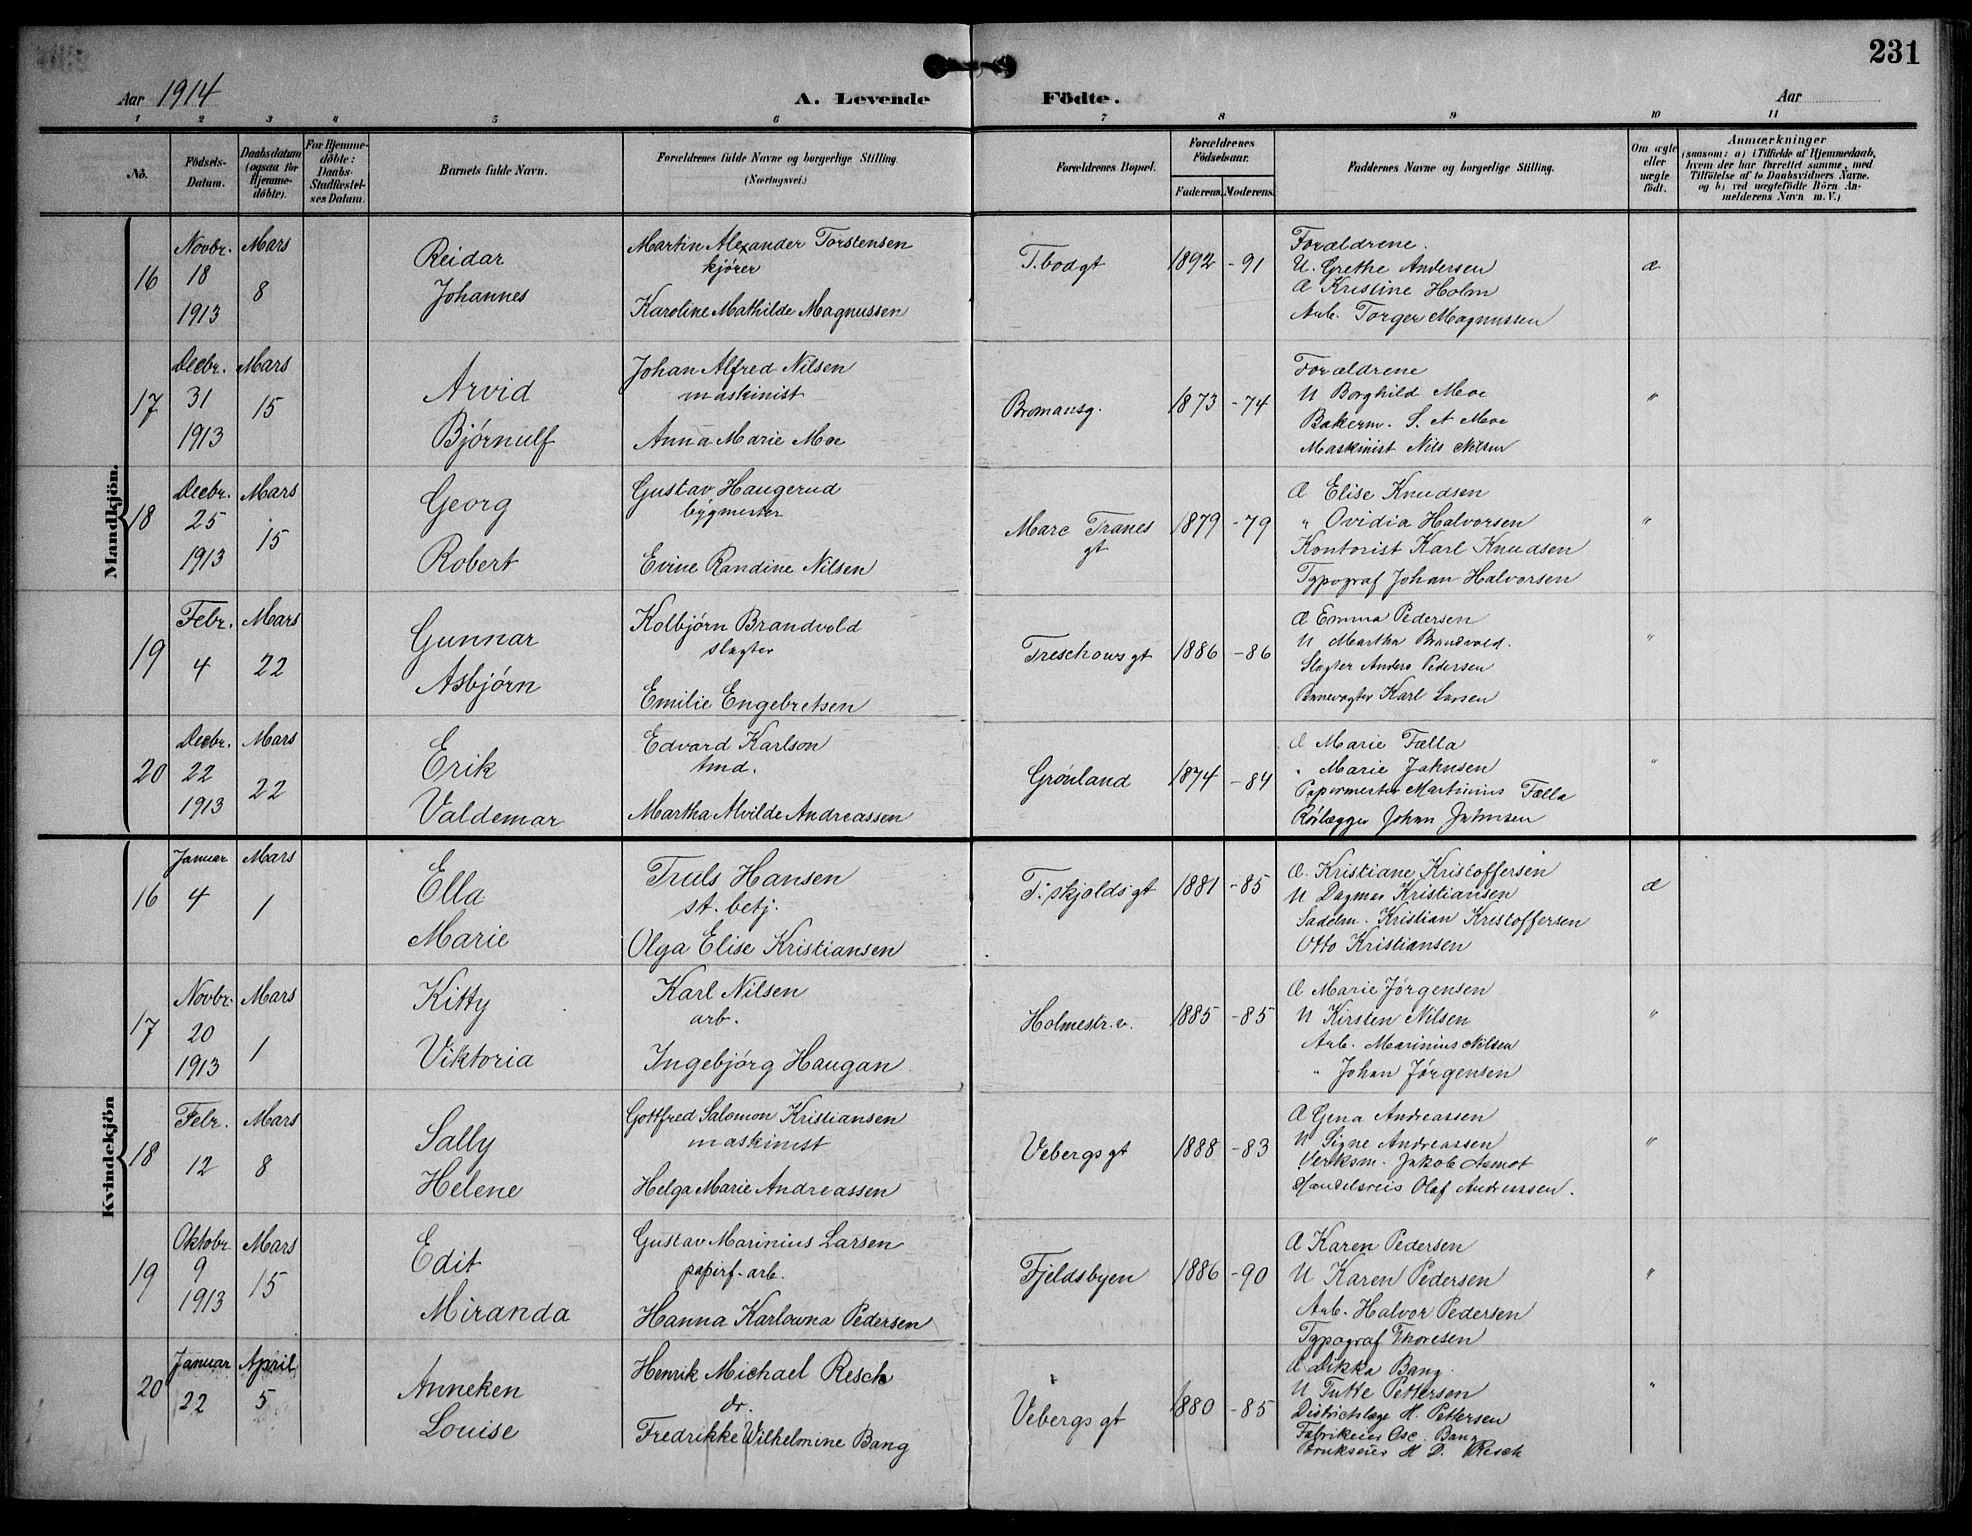 231
Aar 1914
A. Levende Födte.
Aar
1 2 3 4 5 6 7 8 9 10 11
No.
Födsels-Datum.
Daabsdatum (ogsaa for Hjemmedöbte).
For Hjemmedöbte: Daabs-Stadfæstelses Datum.
Barnets fulde Navn.
Forældrenes fulde Navne og borgerlige Stilling.
(Næringsvei.)
Forældrenes Bopæl.
Forældrenes Födselsaar.
Faderens. Moderens.
Faddernes Navne og borgerlige Stilling.
Om ægte eller uægte födt.
Anmærkninger
(saasom: a) i Tilfælde af Hjemmedaab,
hvem der har forrettet samme, med
Tilföielse af to Daabsvidners Navne.
og b) ved uægtefödte Börn Anmelderens Navn m. V.)
Mandkjön.
16
Novbr. 18 1913
Mars 8
Reidar
Johannes
Martin Alexander Torstensen
kjører
Karoline Mathilde Magnussen
T.bodgt
1892 -91
Forældrene.
U. Grethe Andersen
Æ Kristine Holm
Arb. Torger Magnussen
æ
17
Decbr. 31 1913
Mars 15
Arvid
Bjørnulf
Johan Alfred Nilsen
maskinist
Anna Marie Moe
Bromansg.
1873 -74
Forældrene
U Borghild Moe
Bakerm. S. A Moe
Maskinist Nils Nilsen
"
18
Decbr. 25 1913
Mars 15
Georg
Robert
Gustav Haugerud
bygmester
Evine Randine Nilsen
Marc Tranes
gt
1879 -79
Æ Elise Knudsen
" Ovidia Halvorsen
Kontorist Karl Knudsen
Typograf Johan Halvorsen
"
19
Febr. 4
Mars 22
Gunnar
Asbjørn
Kolbjørn Brandvold
slagter
Emilie Engebretsen
Treschows gt
1886 -86
Æ Emma Pedersen
U Martha Brandvold.
Slagter Anders Pedersen
Banevogter Karl Larsen
"
20
Decbr. 22 1913
Mars 22
Erik
Valdemar
Edvard Karlson
tmd.
Martha Alvilde Andreassen
Grønland
1874 -84
Æ Marie Fælla
" Marie Jahnsen
Papermester Martinius Fælla
Rørlægger Johan Jahnsen
"
Kvindekjön
16
Januar 4
Mars 1
Ella
Marie
Truls Hansen
st. betj.
Olga Elise Kristiansen
T. skjolds gt
1881 -85
Æ. Kristiane Kristoffersen
U Dagmar Kristiansen
Sadelm. Kristian Kristoffersen
Otto Kristiansen
æ
17
Novbr. 20 1913
Mars 1
Kitty
Viktoria
Karl Nilsen
arb.
Ingebjørg Haugan
Holmestr.v.
1885 -85
Æ Marie Jørgensen
U Kirsten Nilsen
Arb. Marinius Nilsen
" Johan Jørgensen
"
18
Febr. 12
Mars 8
Sally
Helene
Gottfred Salomon Kristiansen
maskinist
Helga Marie Andreassen
Vebergs gt
1888 -83
Æ Gena Andreassen
U Signe Andreassen
Verksm. Jakob Aamot
Handelsreis Olaf Andreassen.
"
19
Oktobr 9 1913
Mars 15
Edit
Miranda
Gustav Marinius Larsen
papirf-arb.
Hanna Karlowna Pedersen
Fjeldsbyen
1886 -90
Æ Karen Pedersen
U Karen Pedersen
Arb. Halvor Pedersen
Typograf Thoresen
"
20
Januar 22
April 5
Anneken
Louise
Henrik Michael Resch
dr.
Fredrikke Wilhelmine Bang
Vebergs gt
1880 -85
Æ Dikka Bang.
U Tutte Pettersen
Distriktslæge H. Pettersen
Fabrikeier Osc. Bang
Brukseier H D. Resch
"